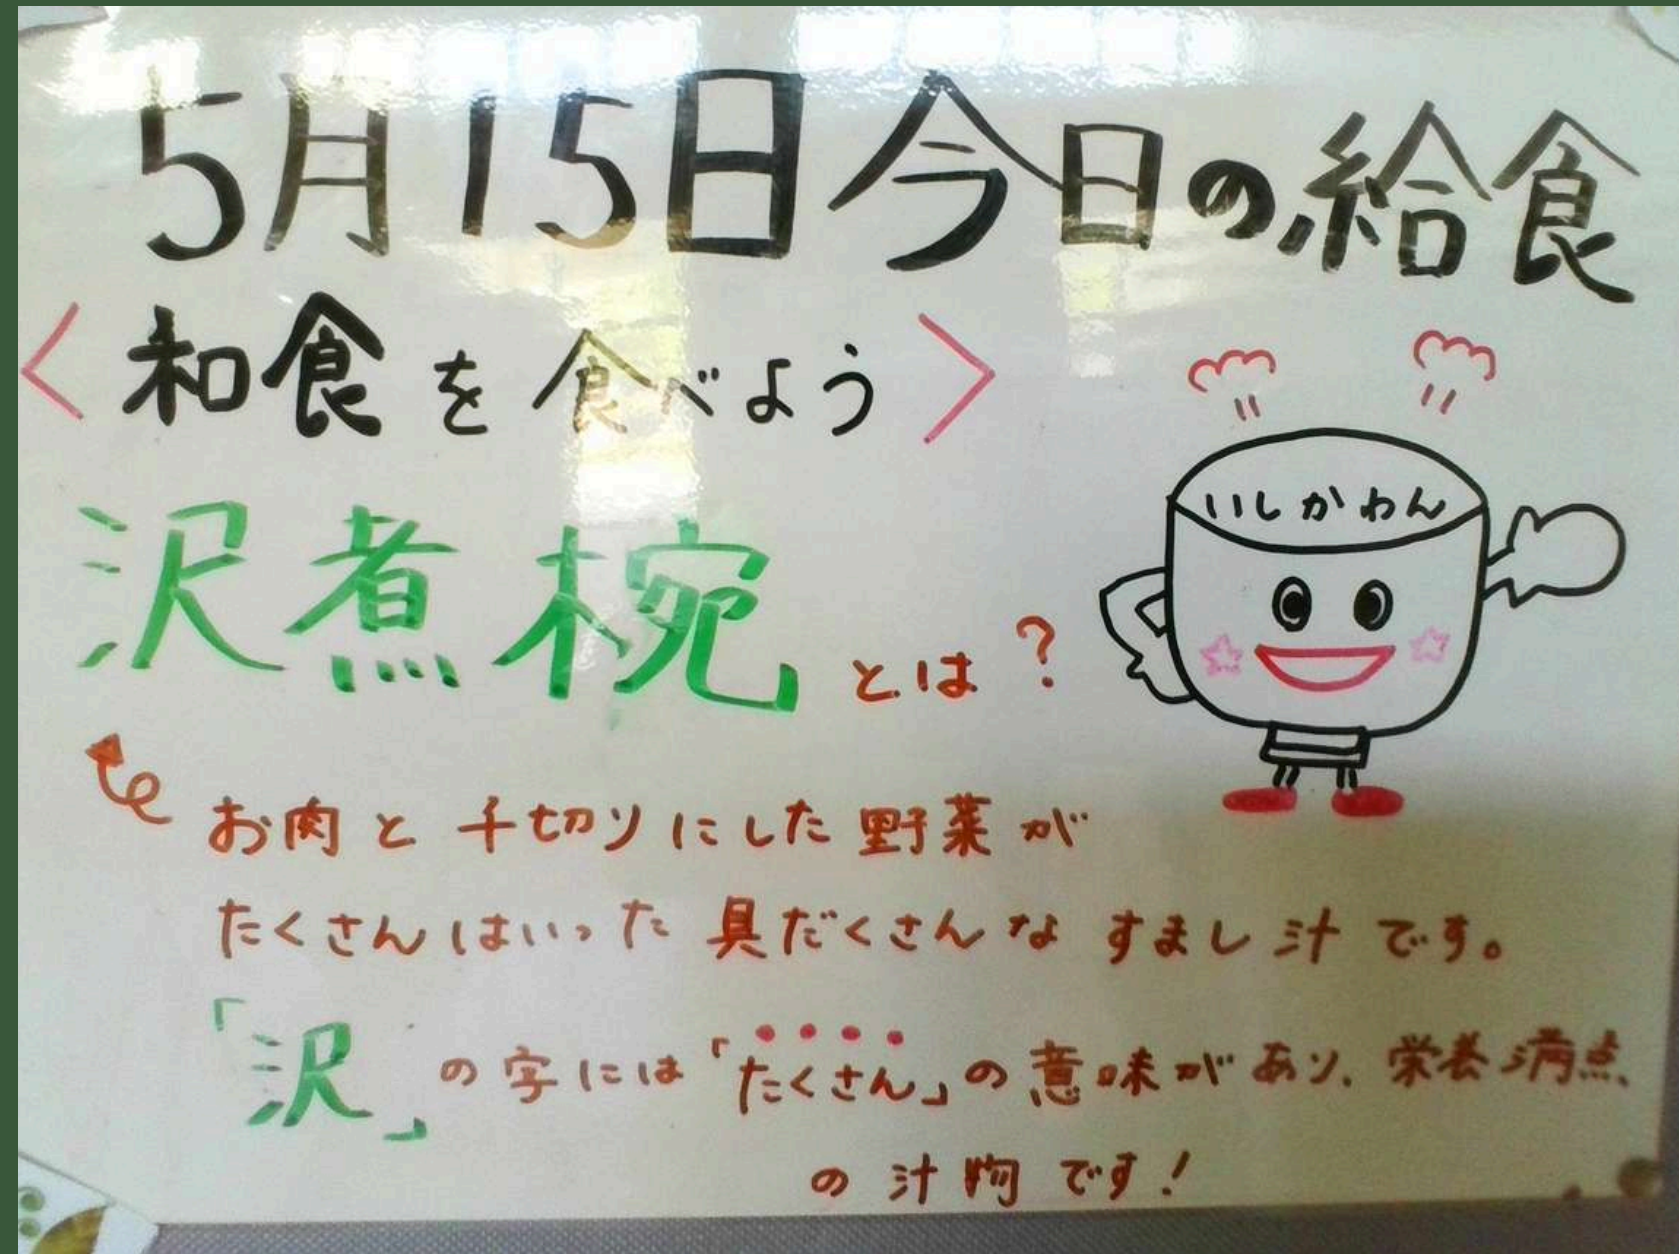 5月15日今日の給食
<和食を食べよう>
いしかわん
沢煮椀とは?
お肉と千切りにした野菜が
たくさんはいった具だくさんなすまし汁です。
「沢」の字には「たくさん」の意味があり、栄養満点
の汁物です!